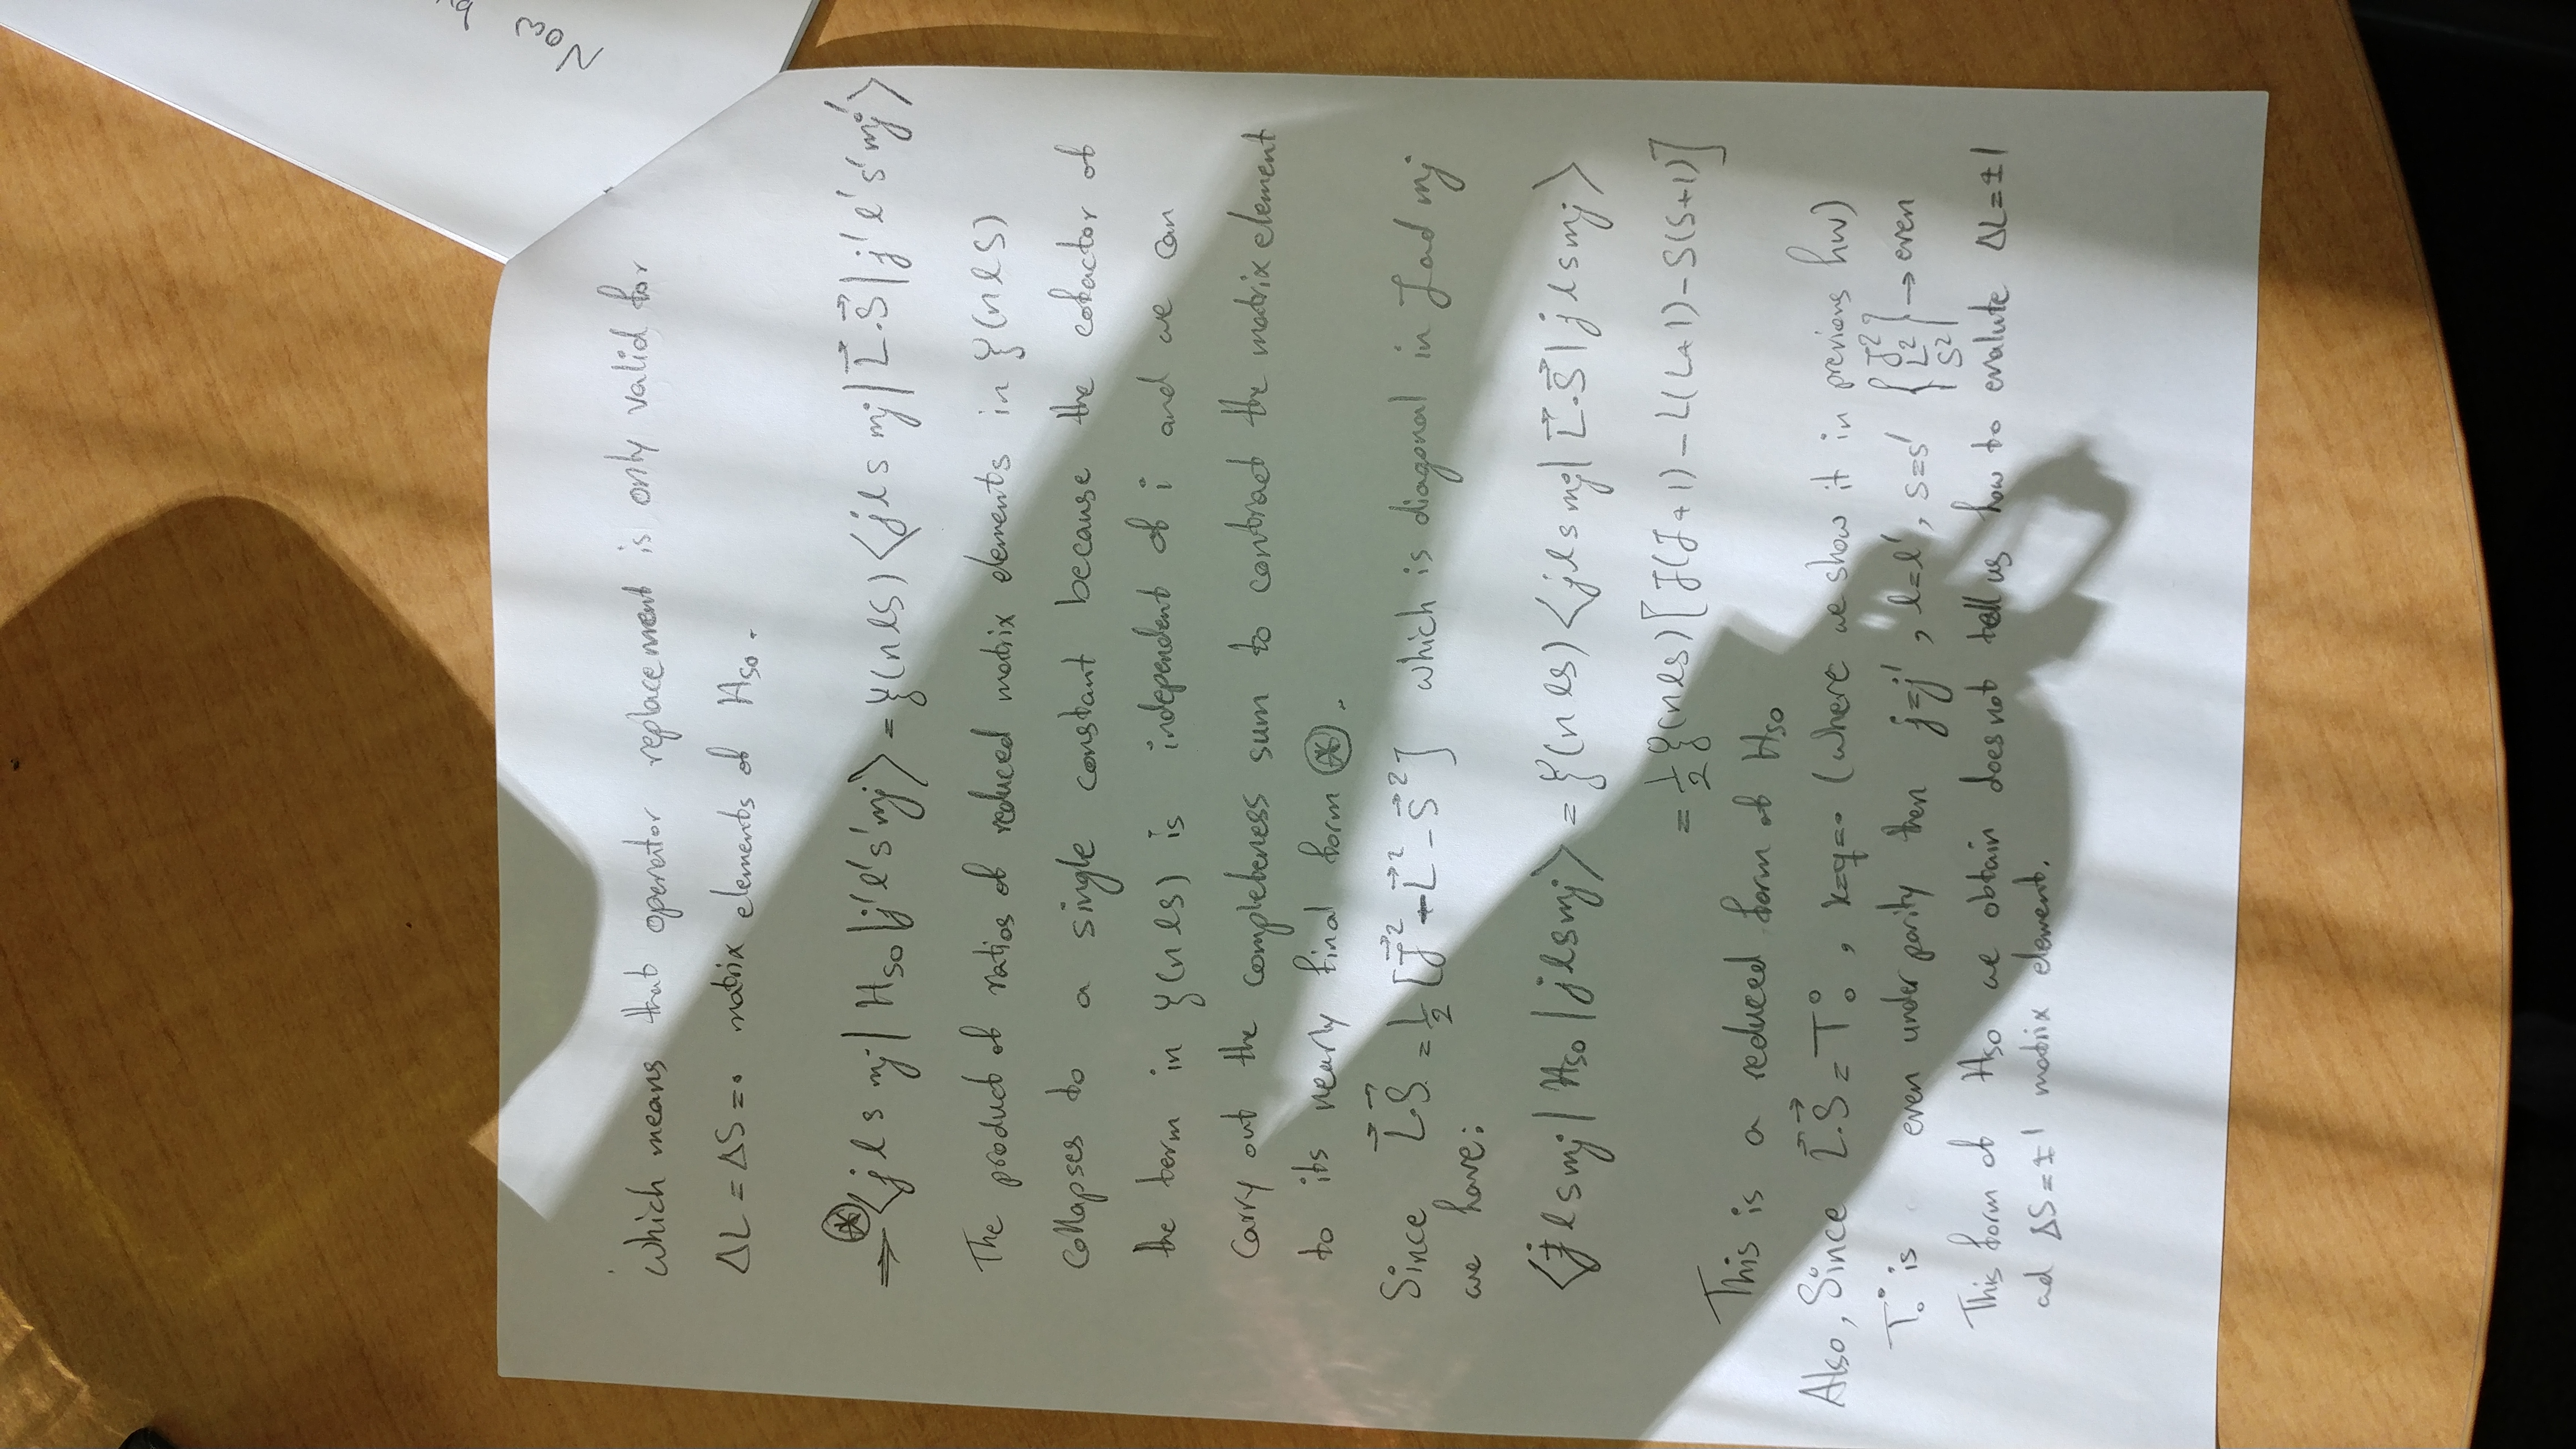 Now
which means that operator replacement is only valid for
ΔL = ΔS = 0 matrix elements of H_SO.
⇒ ⊛ ⟨j l s mj | H_SO | j' l' s' mj⟩ = ξ(nlS) ⟨j l s mj | L⃗.S⃗ | j' l' s' mj'⟩
The product of ratios of reduced matrix elements in ξ(nlS)
collapses to a single constant because the cofactor of
the term in ξ(nls) is independent of i and we can
carry out the completeness sum to contract the matrix element
to its nearly final form ⊛.
Since L⃗.S⃗ = 1/2 [J⃗² - L⃗² - S⃗²] which is diagonal in J ad mj
we have:
⟨j l s mj | H_SO | j l s mj⟩ = ξ(nls) ⟨j l s mj | L⃗.S⃗ | j l s mj⟩
= 1/2 ξ(nls) [J(J+1) - L(L+1) - S(S+1)]
This is a reduced form of H_SO
Also, Since L⃗.S⃗ = T⁰₀, k=q=0 (where we show it in previous hw)
T⁰₀ is even under parity then j=j', l=l', s=s' {J² L² S²} → even
This form of H_SO we obtain does not tell us how to evalute ΔL=±1
ad ΔS=±1 matrix element.